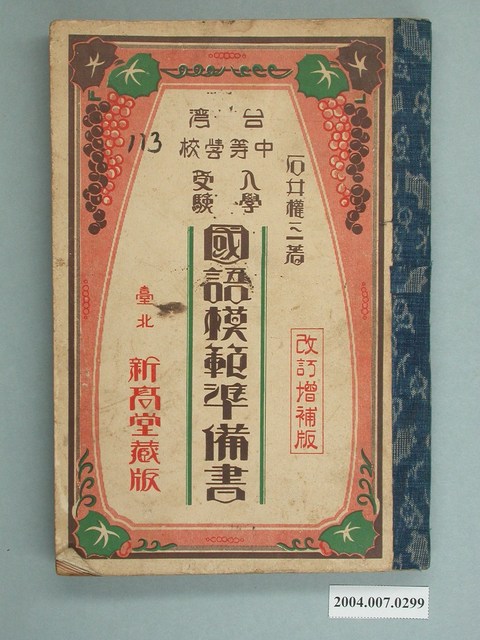 台湾
中等学校
入學
受験
石井權三著
國語模範準備書
改訂增補版
臺北
新高堂藏版
113
2004.007.0299